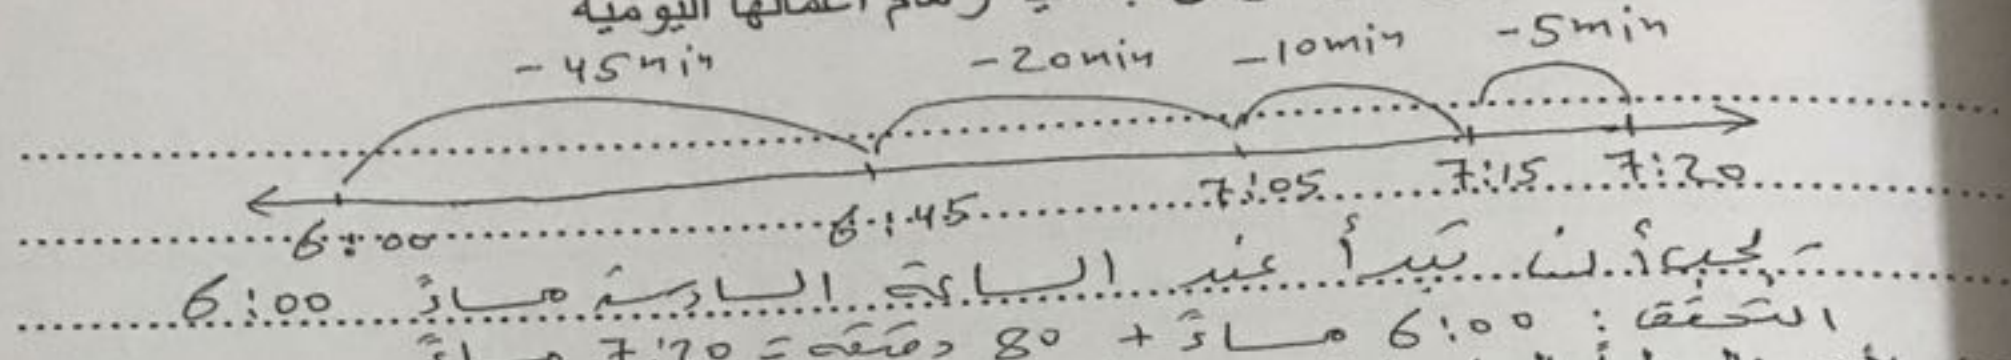 أعمالها اليومية
-45min -20min -10min -5min
6:00 6:45 7:05 7:15 7:20
- يجب أن تبدأ عند الساعة السادسة مساءً 6:00
التحقق: 6:00 مساءً + 80 دقيقة = 7:20 مساءً